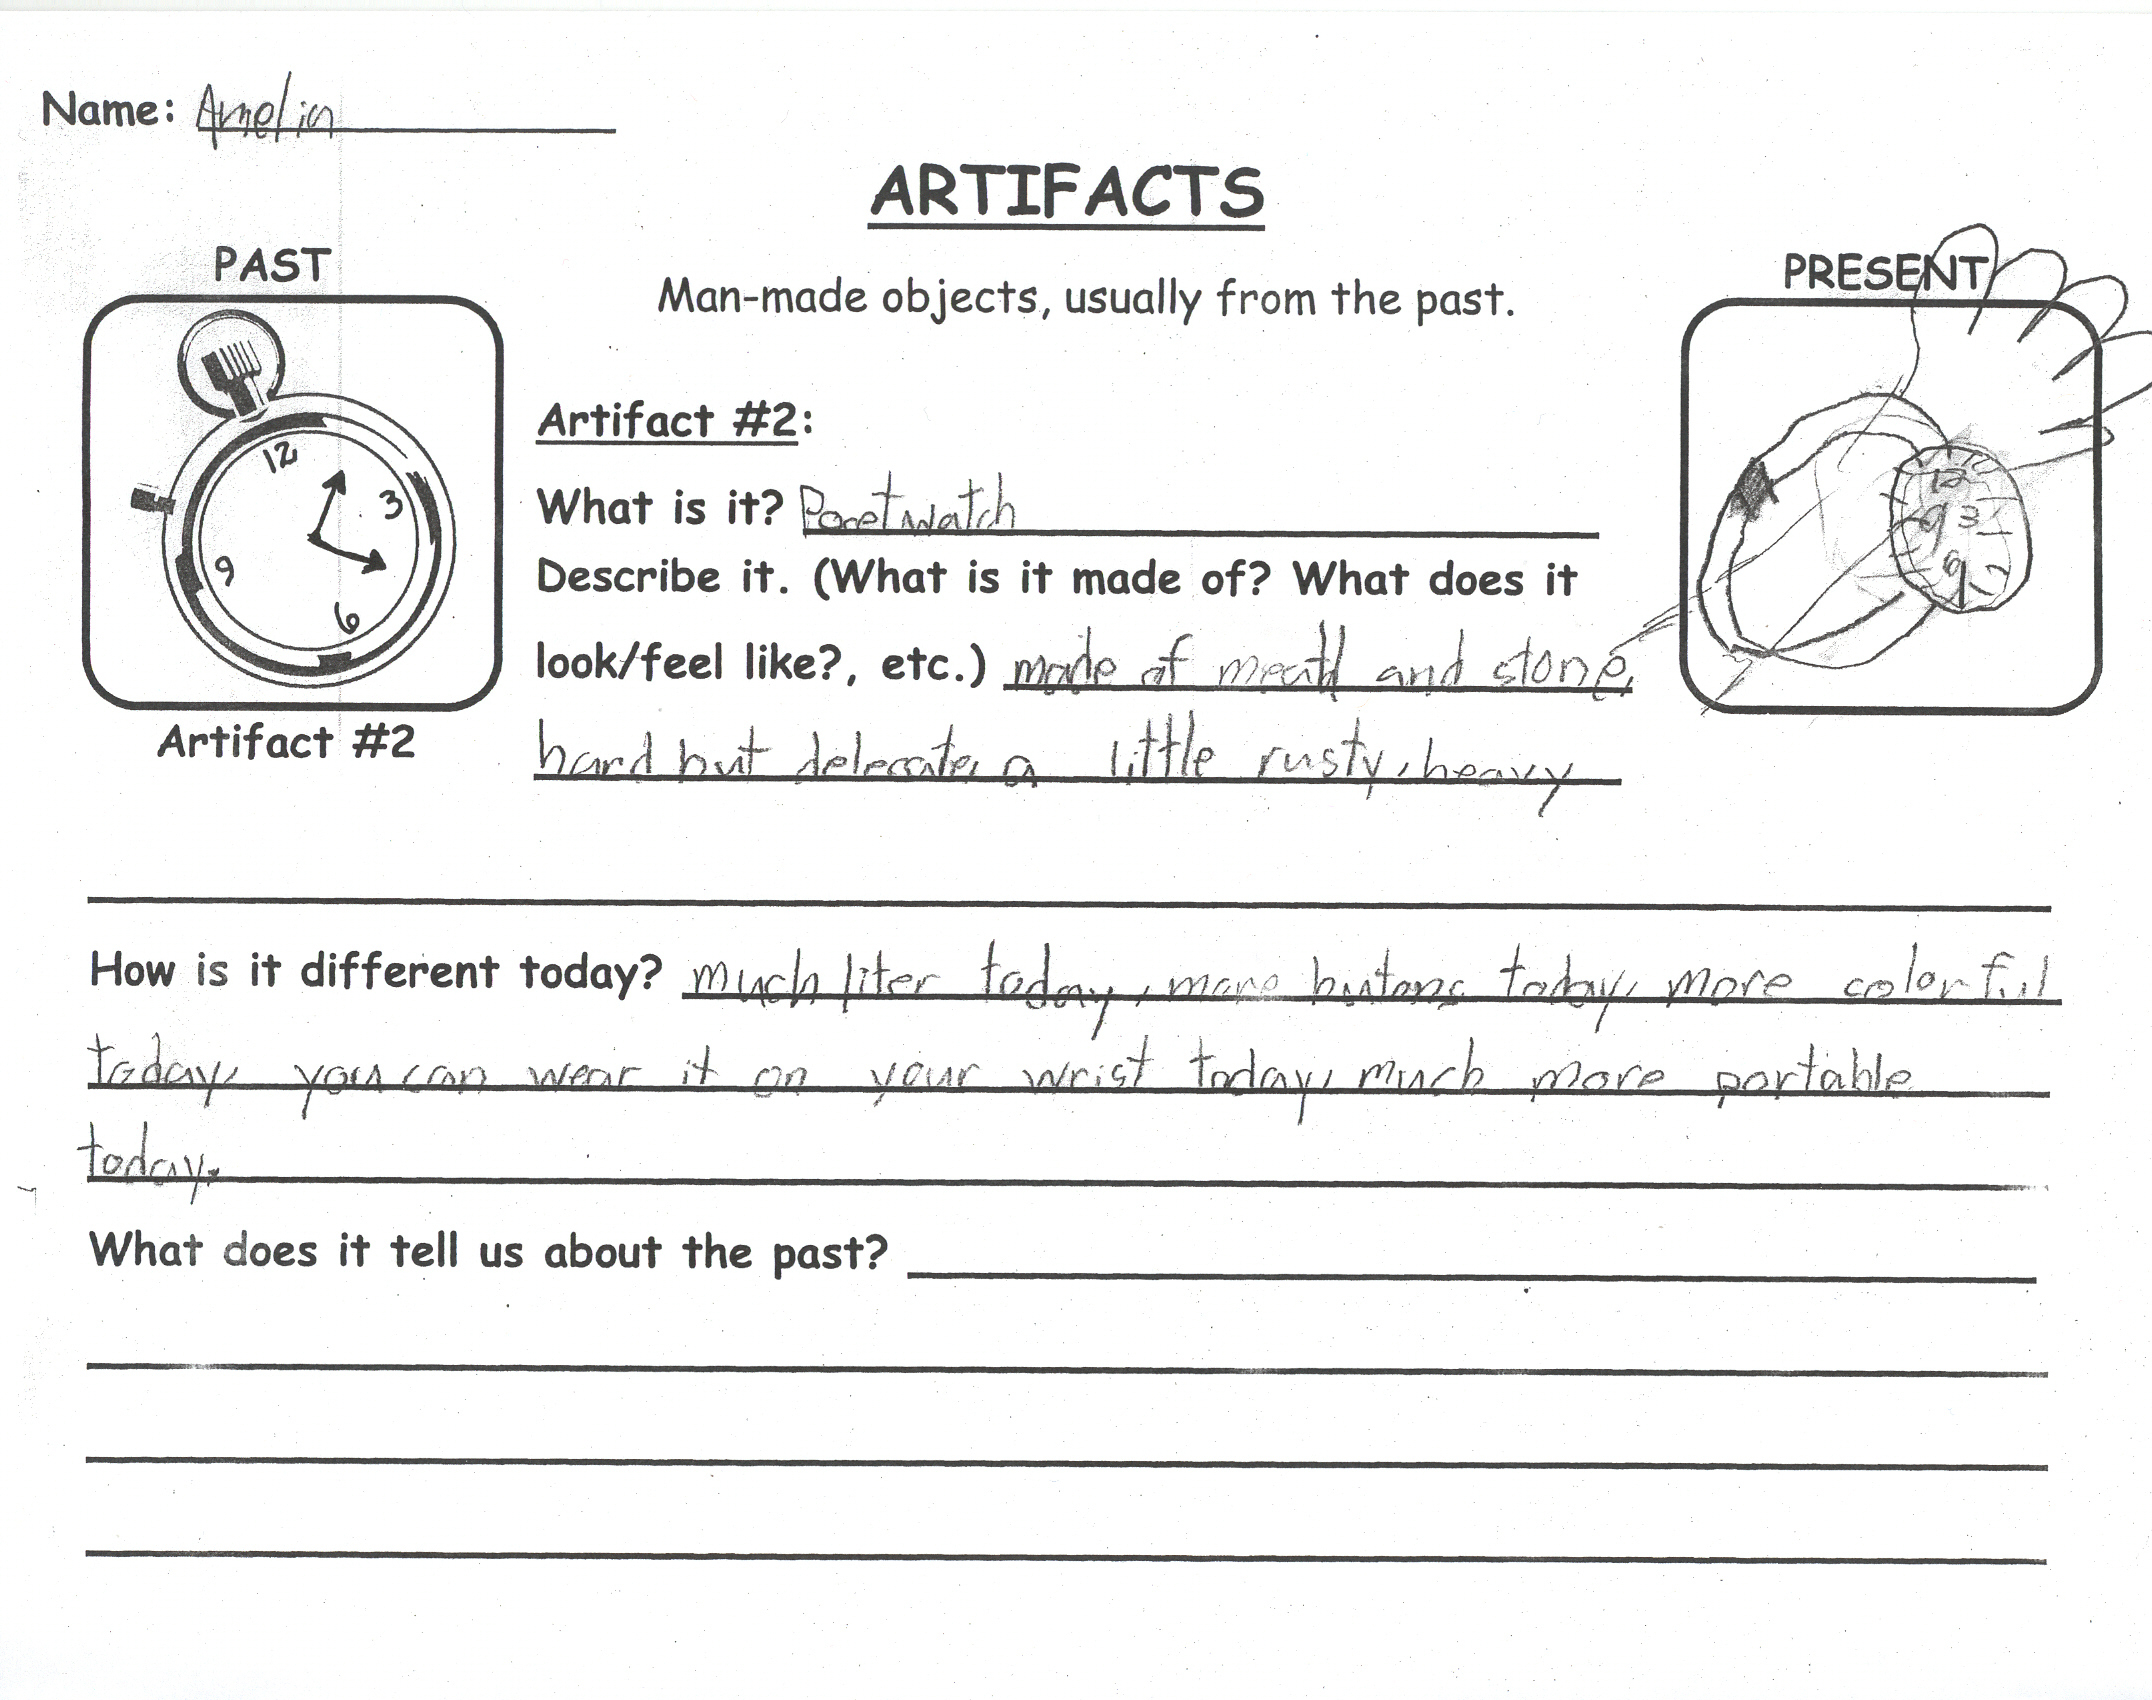 Name: Amelia
ARTIFACTS
PAST
PRESENT
Man-made objects, usually from the past.
12
3
6
9
12
9 3
6
Artifact #2:
What is it? Pocet watch
Describe it. (What is it made of? What does it
look/feel like?, etc.) made of and stone,
Artifact #2
hard but delecate, a little rusty, heavy
How is it different today? much liter today, more butons today, more colorful
today, you can wear it on your wrist today, much more portable
today.
What does it tell us about the past?